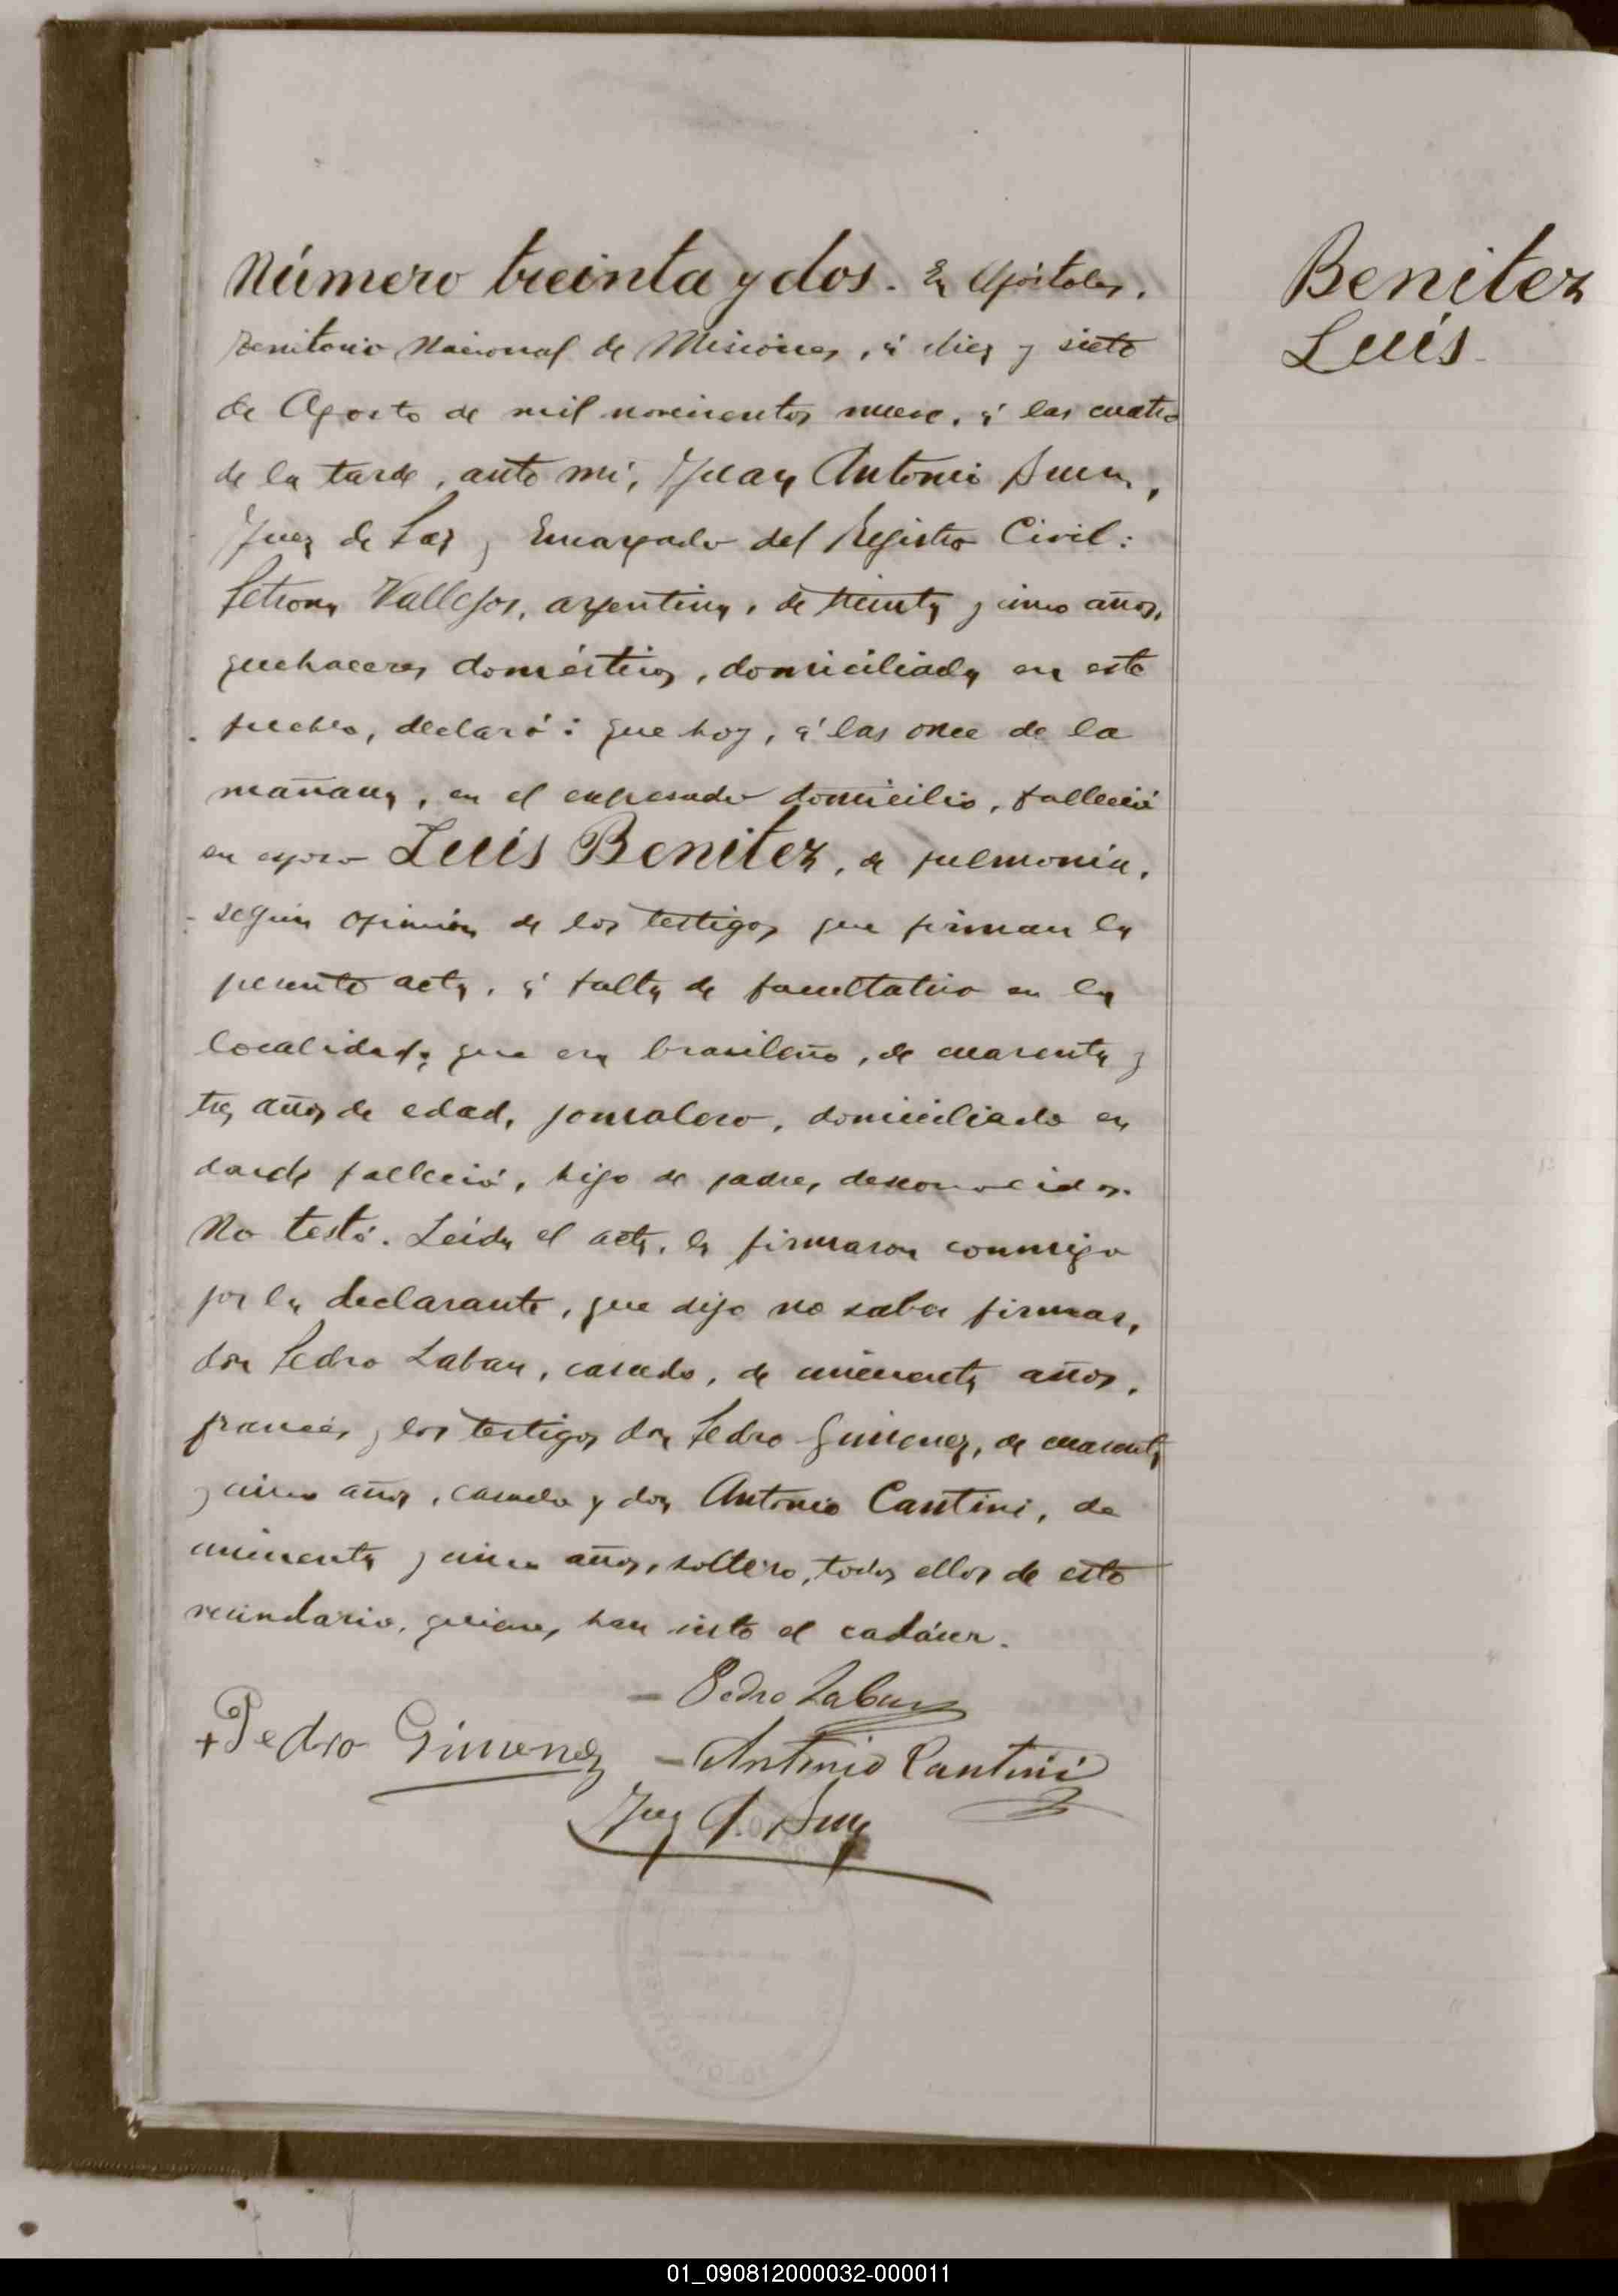 Número treinta y dos. En Apóstoles,
Benitez
Luis
Territorio Nacional de Misiones, á diez y siete
de Agosto de mil novecientos nueve, á las cuatro
de la tarde, ante mí, Juan Antonio
Juez de Paz y Encargado del Registro Civil:
Petrona Vallejos, argentina, de treinta y cinco años,
quehaceres domésticos, domiciliada en este
pueblo, declaró: que hoy, á las once de la
mañana, en el expresado domicilio, falleció
su esposo Luis Benitez, de pulmonía,
según opinión de los testigos que firman la
presente acta, á falta de facultativo en la
localidad; que era brasileño, de cuarenta y
tres años de edad, jornalero, domiciliado en
donde falleció, hijo de padres desconocidos.
No testó. Leída el acta, la firmaron conmigo
por la declarante, que dijo no saber firmar,
don Pedro Laban, casado, de cincuenta años,
francés y los testigos don Pedro Gimenez, de cuarenta
y cinco años, casado y don Antonio Cantini, de
cincuenta y cinco años, soltero, todos ellos de este
vecindario, quienes han visto el cadáver.
Pedro Laban
+Pedro Gimenez
Antonio Cantini
01_090812000032-000011